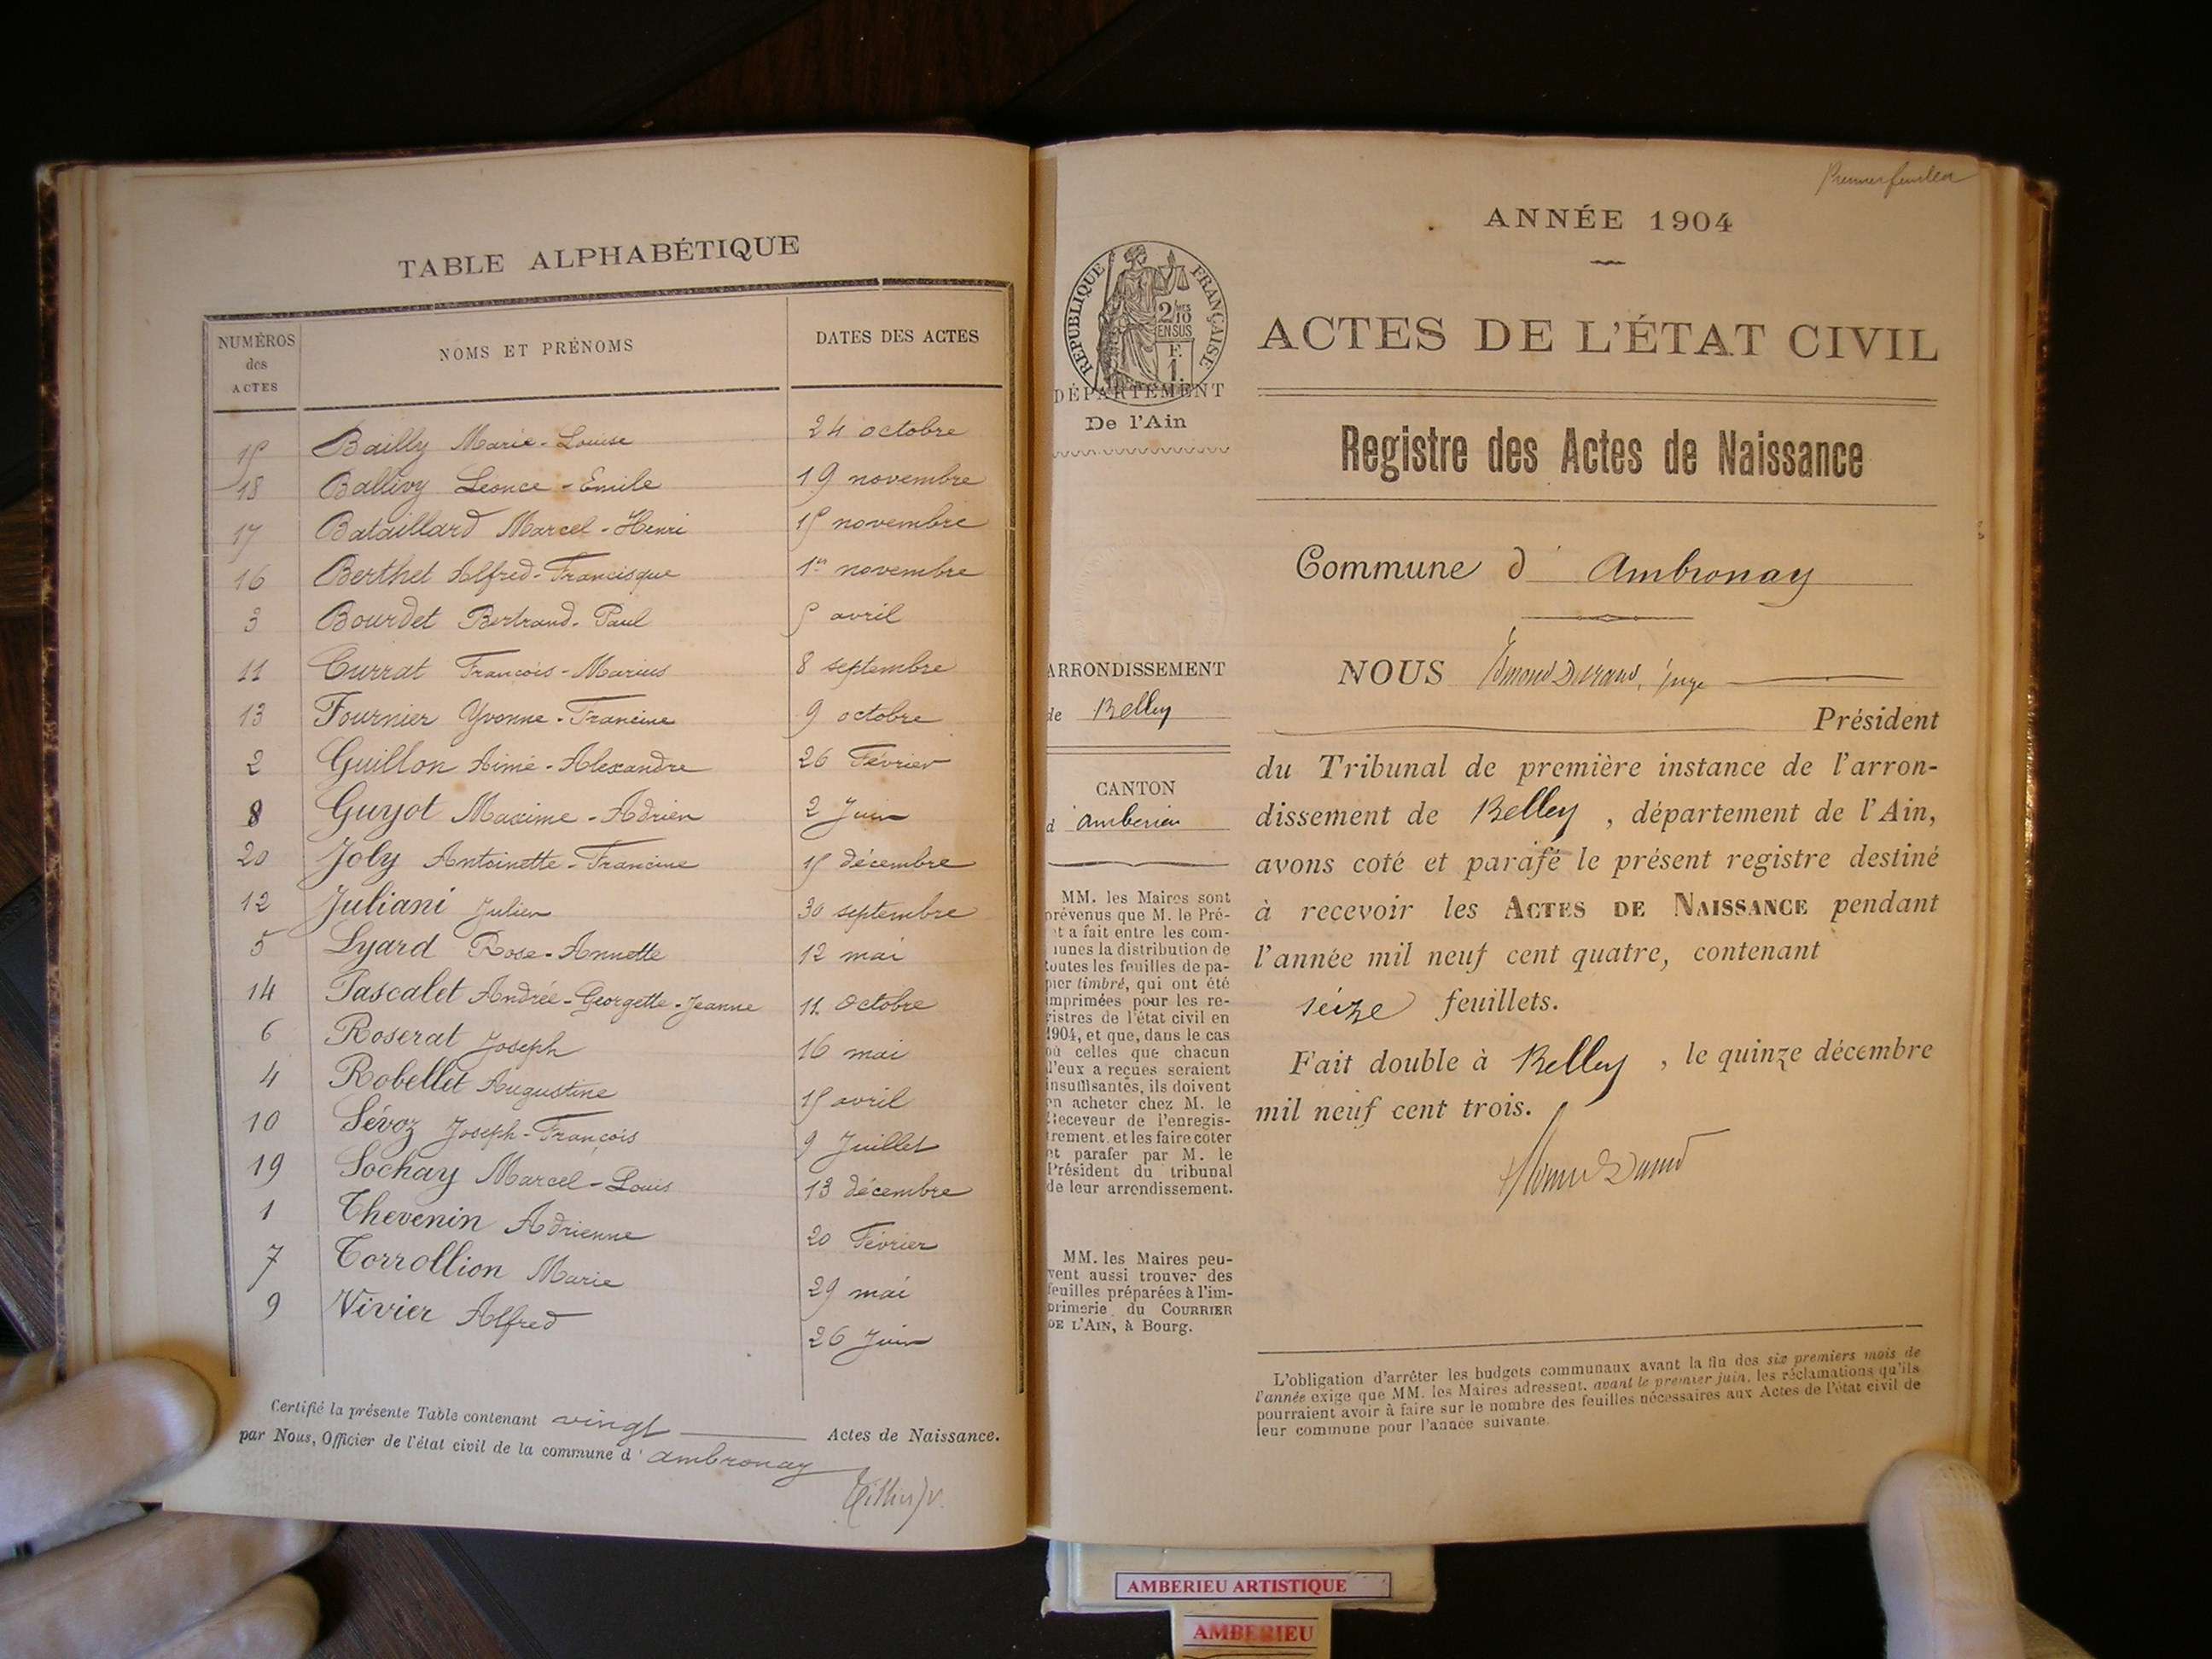 TABLE ALPHABÉTIQUE
NUMÉROS des ACTES NOMS ET PRÉNOMS DATES DES ACTES
15 Bailly Marie-Louise 24 octobre
18 Ballivy Leonce-Emile 19 novembre
17 Bataillard Marcel-Henri 15 novembre
16 Berthet Alfred-Francisque 1er novembre
3 Bourdet Bertrand-Paul 5 avril
11 Currat François-Marius 8 septembre
13 Fournier Yvonne-Francine 9 octobre
2 Guillon Aimé-Alexandre 26 Février
8 Guyot Maxime-Adrien 2 Juin
20 Joly Antoinette-Francine 15 décembre
12 Juliani Julien 30 septembre
5 Lyard Rose-Annette 12 mai
14 Pascalet Andrée-Georgette-Jeanne 11 Octobre
6 Roserat Joseph 16 mai
4 Robellet Augustine 15 avril
10 Sévoz Joseph-François 9 Juillet
19 Sochay Marcel-Louis 13 décembre
1 Thevenin Adrienne 20 Février
7 Torrollion Marie 29 mai
9 Vivier Alfred 26 Juin
Certifié la présente Table contenant vingt Actes de Naissance.
par Nous, Officier de l'état civil de la commune d'Ambronay
Premier feuillet
ANNÉE 1904
RÉPUBLIQUE FRANÇAISE
2/10
EN SUS
F.
1.
DÉPARTEMENT
De l'Ain
ARRONDISSEMENT
de Belley
CANTON
d'Ambérieu
MM. les Maires sont
prévenus que M. le Pré-
et a fait entre les com-
munes la distribution de
toutes les feuilles de pa-
pier timbré, qui ont été
imprimées pour les re-
gistres de l'état civil en
1904, et que, dans le cas
où celles que chacun
d'eux a reçues seraient
insuffisantes, ils doivent
en acheter chez M. le
Receveur de l'enregis-
trement, et les faire coter
et parafer par M. le
Président du tribunal
de leur arrondissement.
MM. les Maires peu-
vent aussi trouver des
feuilles préparées à l'im-
primerie du COURRIER
DE L'AIN, à Bourg.
ACTES DE L'ÉTAT CIVIL
Registre des Actes de Naissance
Commune d'Ambronay
NOUS Edmond Durand, juge
Président
du Tribunal de première instance de l'arron-
dissement de Belley, département de l'Ain,
avons coté et parafé le présent registre destiné
à recevoir les ACTES DE NAISSANCE pendant
l'année mil neuf cent quatre, contenant
seize feuillets.
Fait double à Belley, le quinze décembre
mil neuf cent trois.
L'obligation d'arrêter les budgets communaux avant la fin des six premiers mois de
l'année exige que MM. les Maires adressent, avant le premier juin, les réclamations qu'ils
pourraient avoir à faire sur le nombre des feuilles nécessaires aux Actes de l'état civil de
leur commune pour l'année suivante.
AMBERIEU ARTISTIQUE
AMBERIEU